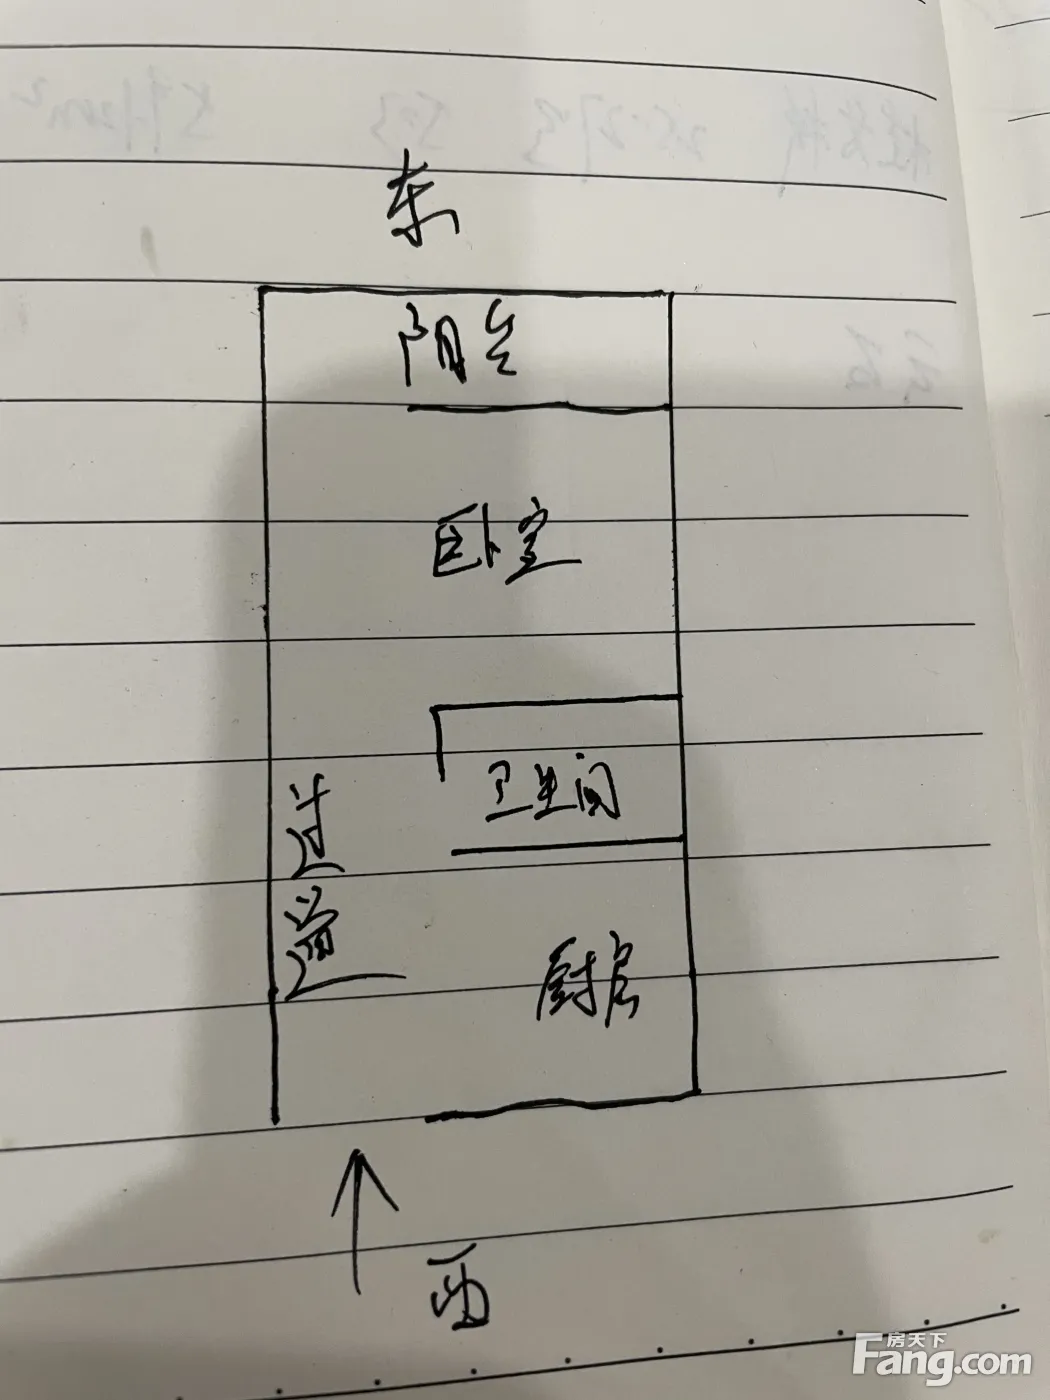 东
阳台
卧室
卫生间
过道
厨房
西
房天下
Fang.com